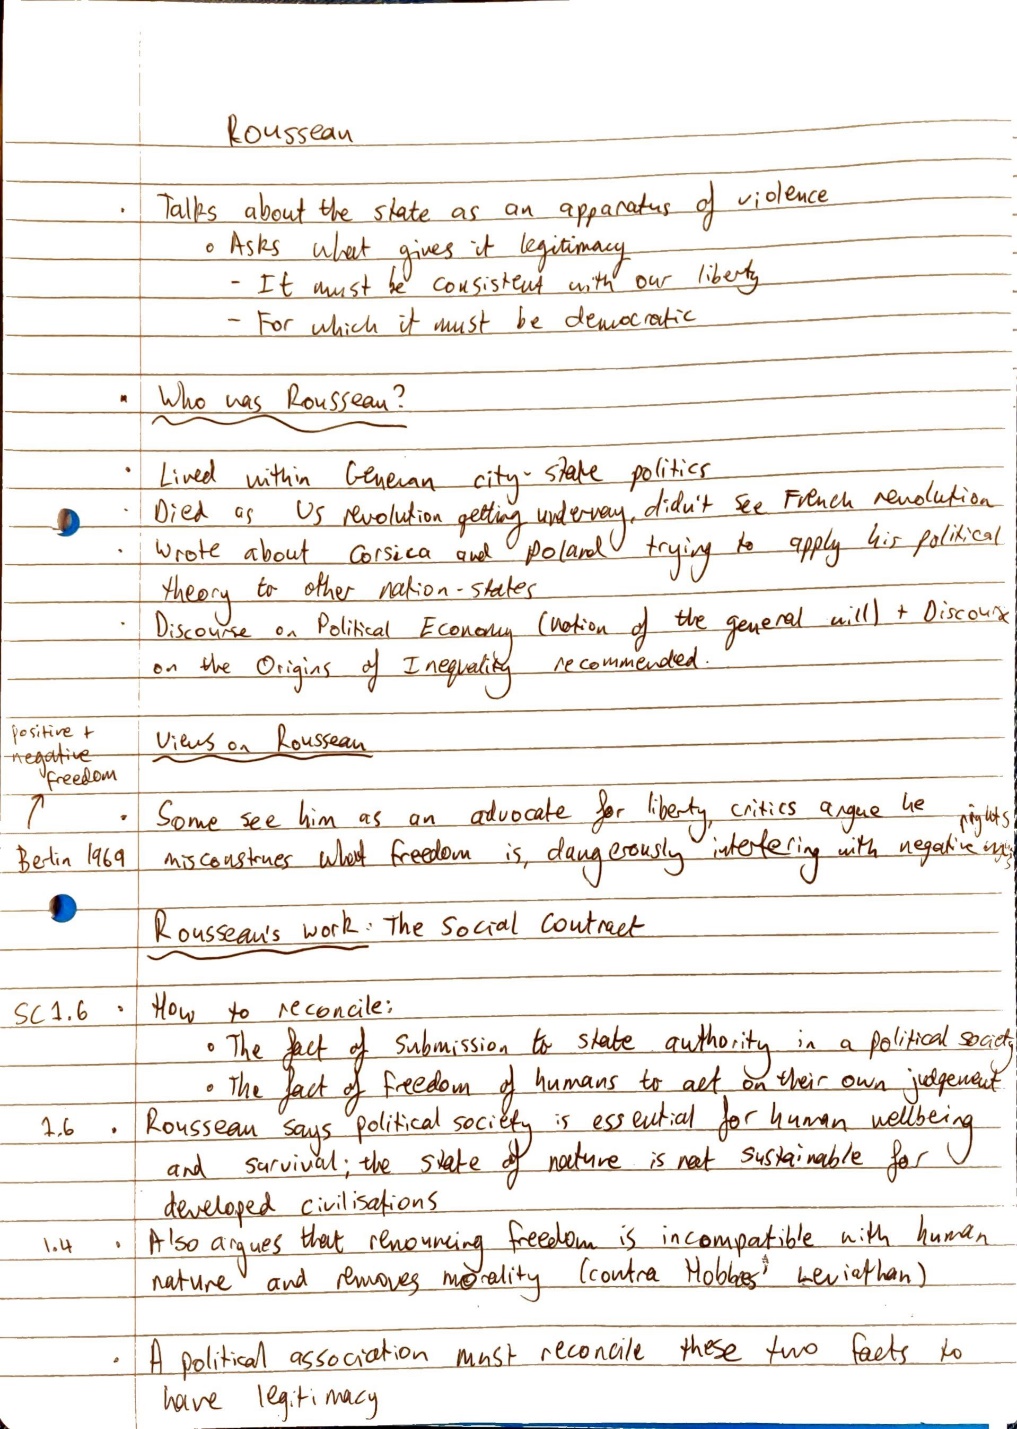 Rousseau
· Talks about the state as an apparatus of violence
o Asks what gives it legitimacy
- It must be consistent with our liberty
- For which it must be democratic
· Who was Rousseau?
· Lived within Genevan city-state politics
· Died as US revolution getting underway, didn't see French revolution
· Wrote about Corsica and Poland trying to apply his political
theory to other nation-states
· Discourse on Political Economy (notion of the general will) + Discourse
on the Origins of Inequality recommended.
positive +
negative
freedom
↑
Berlin 1969
Views on Rousseau
· Some see him as an advocate for liberty, critics argue he
misconstrues what freedom is, dangerously interfering with negative rights
Rousseau's work: The Social Contract
SC 1.6 · How to reconcile:
o The fact of submission to state authority in a political society
o The fact of freedom of humans to act on their own judgement
1.6 · Rousseau says political society is essential for human wellbeing
and survival; the state of nature is not sustainable for
developed civilisations
1.4 · Also argues that renouncing freedom is incompatible with human
nature and removes morality (contra Hobbes' Leviathan)
· A political association must reconcile these two facts to
have legitimacy